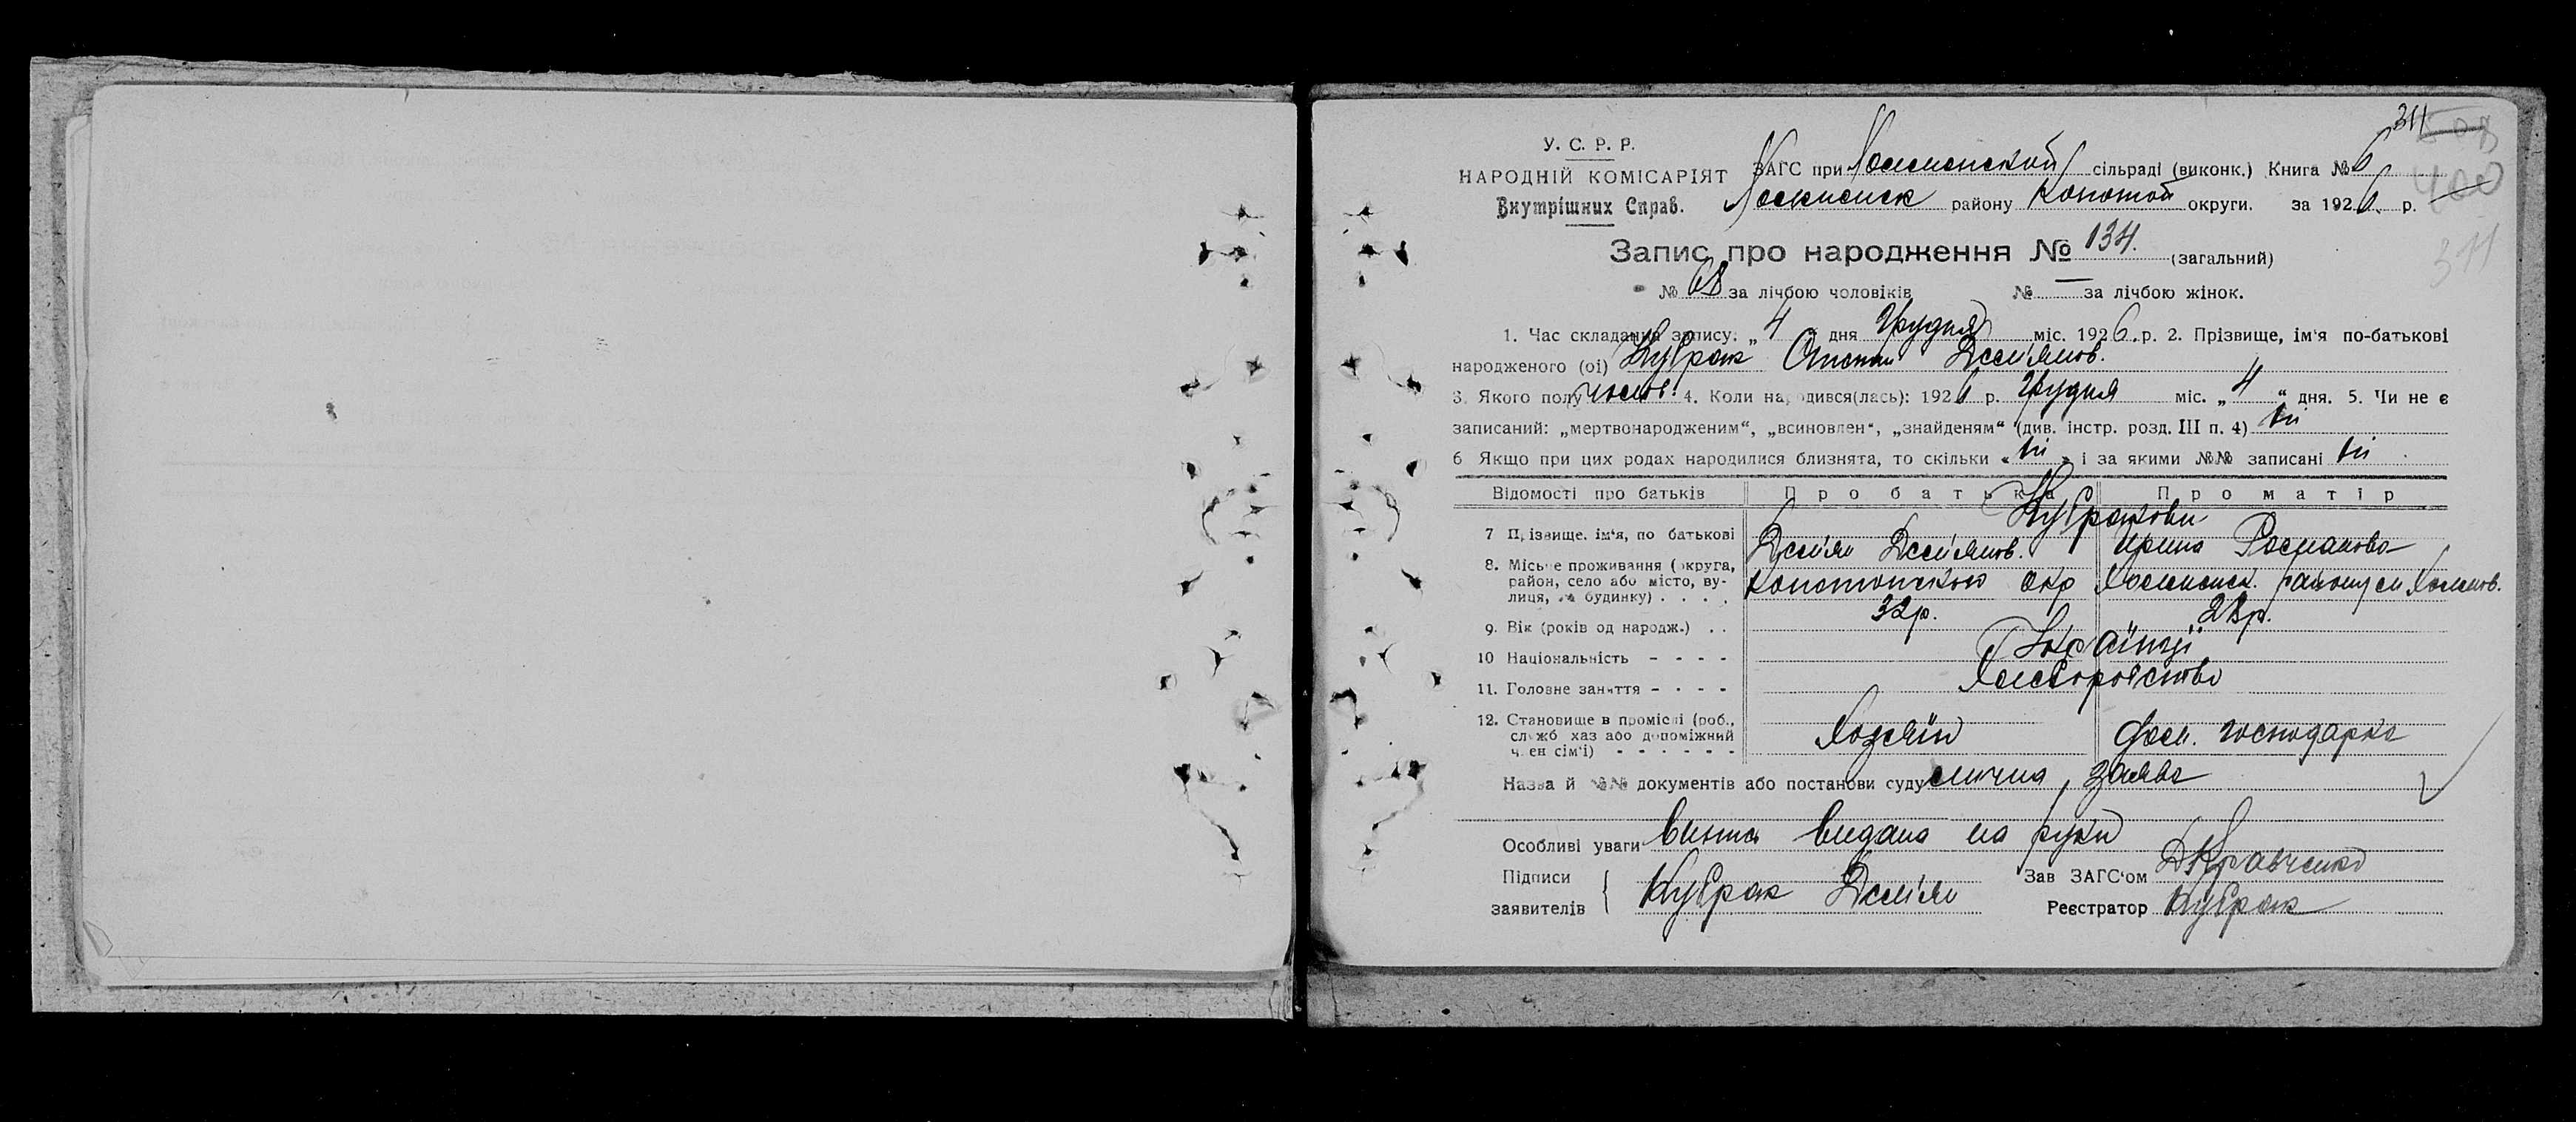 311
508
У. С. Р. Р.
НАРОДНІЙ КОМІСАРІЯТ
Внутрішних Справ.
ЗАГС при Хоменской сільраді (виконк.) Книга № 6
400
району Конотоп округи. за 1926 р.
311
Запис про народження № 134. (загальний)
№ 68 за лічбою чоловіків № — за лічбою жінок.
1. Час складання запису: „ 4 " дня Грудня міс. 1926 р. 2. Прізвище, ім'я по-батькові
народженого (ої) Кубрак Антон Дем'янов.
3. Якого полу чолов. 4. Коли народився(лась): 1926 р. Грудня міс. „ 4 " дня. 5. Чи не є
записаний: „мертвонародженим", „всиновлен", „знайденям" (див. інстр. розд. III п. 4) ні
6 Якщо при цих родах народилися близнята, то скільки « ні » і за якими №№ записані ні
Відомості про батьків Про батька Про матір
Кубракови
7 Прізвище. ім'я, по батькові Дем'ян Дем'янов. Ирина Романова
8. Місьце проживання (округа, район, село або місто, вулиця, № будинку) Конотопською окр району
9. Вік (років од народж.) . . 32р. 28р.
10 Національність - - - - Українці
11. Головне заняття - - - - Хлеборобство
12. Становище в промислі (роб., служб хаз або допоміжний член сім'ї) - - - - - - Хозяїн дом. господарка
Назва й №№ документів або постанови суду слична заява
Особливі уваги Випись видана на руки
Підписи заявителів { Кубрак Дем'ян
Зав ЗАГС'ом Д Кравченко
Реєстратор Кубрак